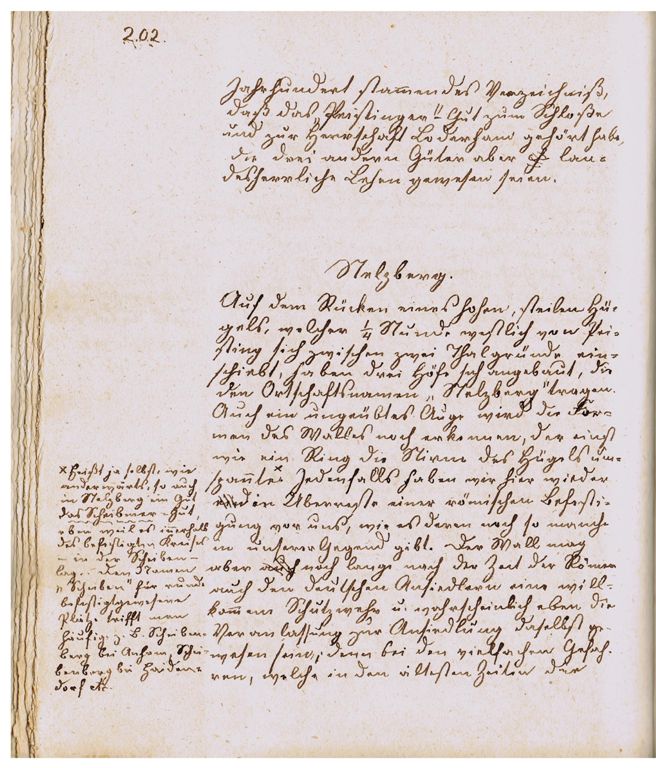 202.
Jahrhundert stammendes Verzeichniß,
daß das „Peistinger"-Gut zum Schloße
und zur Herrschaft Loderham gehört habe,
die drei andern Güter aber lan-
desherrliche Lehen gewesen seien.
Stelzberg.
Auf dem Rücken eines hohen, steilen Hü-
gels, welcher ¼ Stunde westlich von Pei-
sting sich zwischen zwei Thalgründe ein-
schiebt, haben drei Höfe sich angebaut, die
den Ortschaftsnamen „Stelzberg" tragen.
Auch ein ungeübtes Auge wird die For-
men des Walles noch erkennen, der einst
wie ein Ring die Stirne des Hügels um-
spannte.× Jedenfalls haben wir hier wieder
den Überreste einer römischen Befesti-
gung vor uns, wie es deren noch so manche
in unserer Gegend gibt. Der Wall mag
aber noch lange nach der Zeit der Römer
auch den deutschen Ansiedlern eine will-
kommene Schutzwehr u. wahrscheinlich eben die
Veranlassung zur Ansiedlung daselbst ge-
wesen sein; denn bei den vielfachen Gefah-
ren, welche in den ältesten Zeiten der
× Heißt ja selbst, wie
anderwärts, so auch
in Stelzberg ein Gut
das Scheibner-Gut,
eben weil es innerhalb
des befestigten Kreises
= in der Scheiben =
lag. Den Namen
„Scheiben" für runde
befestigtgewesene
Plätze trifft man
häufig; z. B. Scheiben-
berg bei Anham, Schei-
benberg bei Haiden-
dorf etc.